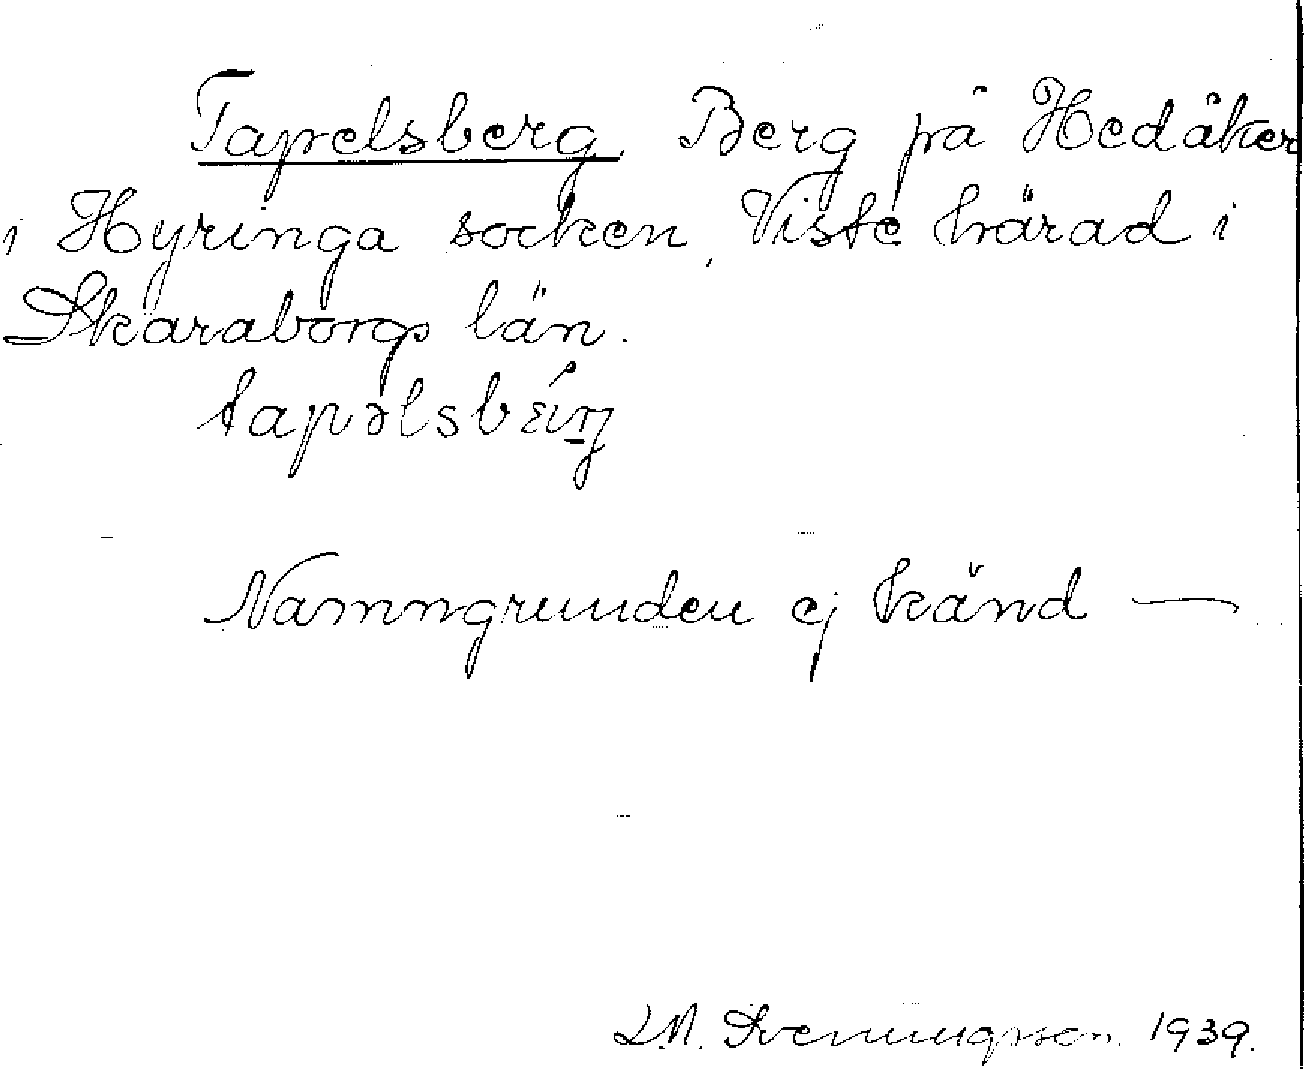 Tapelsberg. Berg på Hedåker
i Hyringa socken, Viste härad i
Skaraborgs län.
tapəlsbærj
Namngrunden ej känd —
L.M. Svenungsson. 1939.